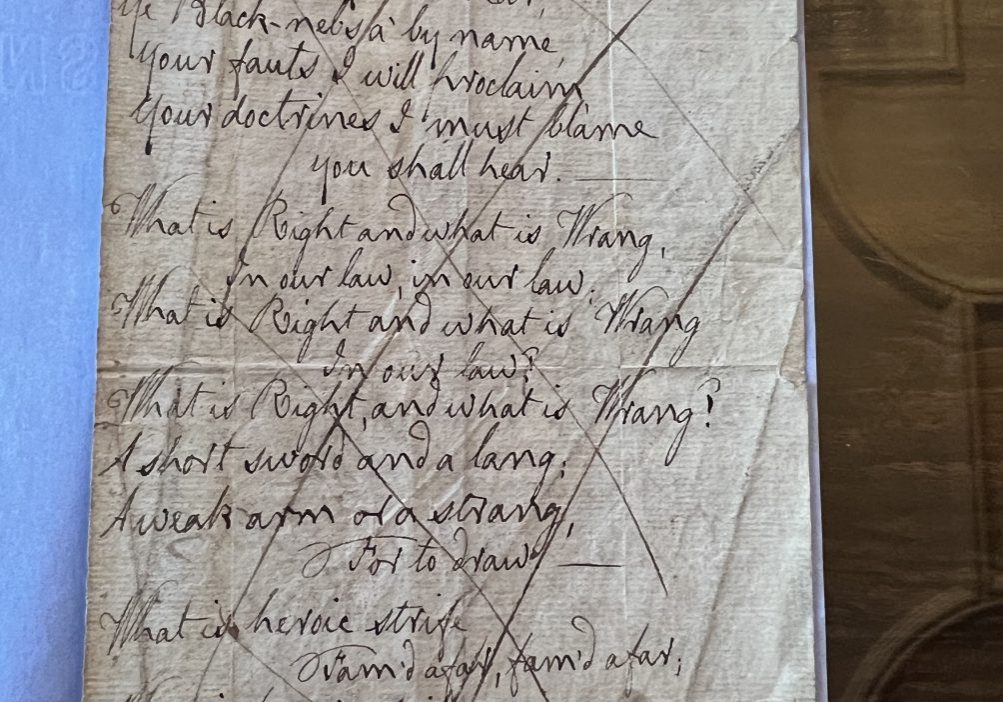 Ye Black-nebs a' by name,
Your fauts I will proclaim
Your doctrines I must blame
you shall hear. ——
What is Right and what is Wrang,
In our law, in our law;
What is Right and what is Wrang
In our law?
What is Right, and what is Wrang?
A short sword and a lang;
A weak arm or a strang,
For to draw. ——
What is heroic strife
Fam'd afar, fam'd afar;